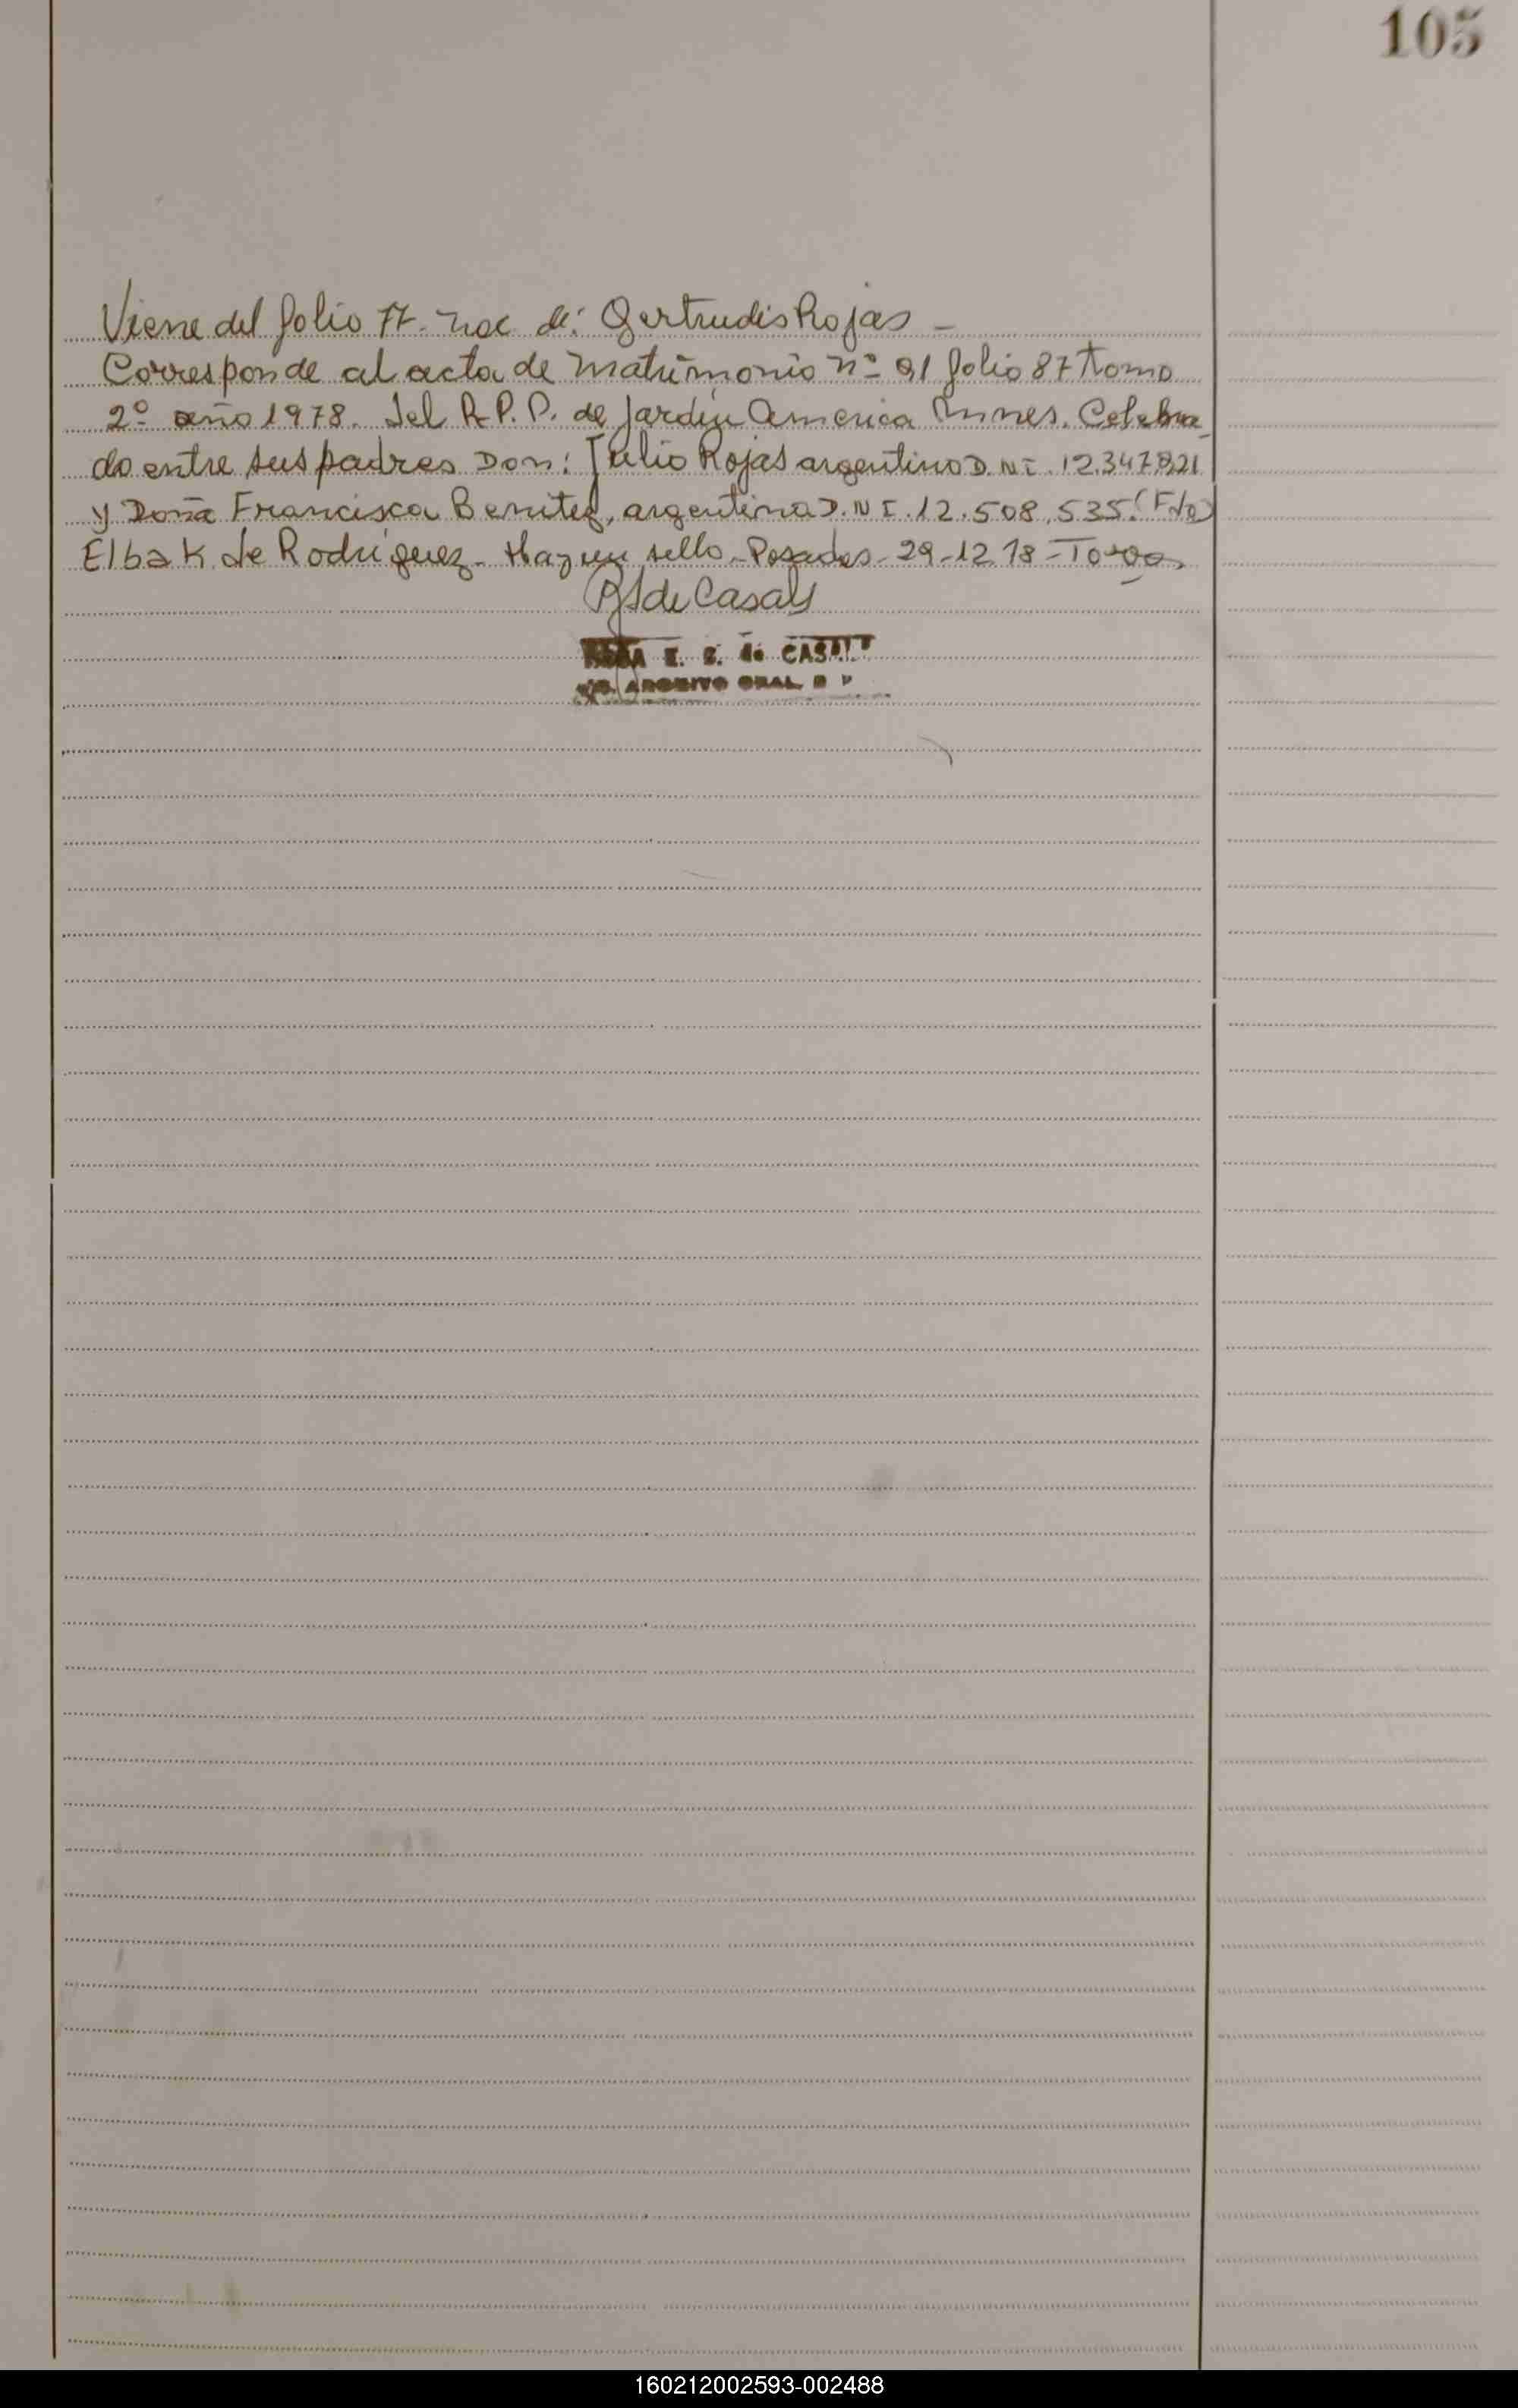 105
Viene del folio 77. nac de: Gertrudis Rojas -
Corresponde al acta de matrimonio nº 91 folio 87 tomo
2º año 1978. del R.P.P. de Jardín America Mnes. Celebra
do entre sus padres Don: Julio Rojas argentino D.N.I. 12.347.821
y Doña Francisca Benitez, argentina D.N.I. 12.508.535. (Fdo)
Elba K. de Rodriguez - Hay un sello - Posadas - 29-12-78 -
de Casals
E. S. de CASALS
ARCHIVO GRAL. R P
160212002593-002488